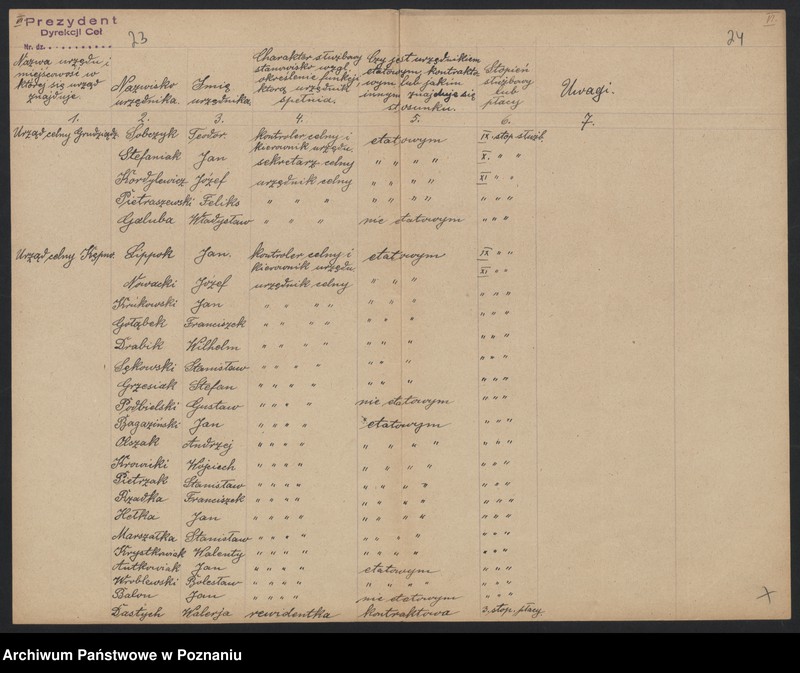 III
Prezydent
Dyrekcji Ceł
Nr. dz.
23
24
Nazwa urzędu i miejscowość w której się urząd znajduje
Nazwisko urzędnika
Imię urzędnika
Charakter służbowy stanowisko wzgl. określenie funkcji, którą urzędnik spełnia.
Czy jest urzędnikiem etatowym, kontraktowym lub jakim innym znajduje się stosunku.
Stopień służbowy lub płacy
Uwagi.
1. 2. 3. 4. 5. 6. 7.
Urząd celny Grudziądz Sobczyk Teodor. kontroler celny i kierownik urzędu. etatowym IX stop służb.
Stefaniak Jan sekretarz celny " " " " X. " "
Kordylewicz Józef urzędnik celny " " " " XI " "
Pietraszewski Feliks " " " " " " " " " "
Gałuba Władysław " " " nie etatowym " " "
Urząd celny Kępno Lippok Jan. kontroler celny i kierownik urzędu etatowym IX " "
Nowacki Józef urzędnik celny " " " XI " "
Krukowski Jan " " " " " " " " " "
Gołąbek Franciszek " " " " " " " " " "
Drabik Wilhelm " " " " " " " " " "
Sękowski Stanisław " " " " " " " " " "
Grzesiak Stefan " " " " " " " " " "
Podbielski Gustaw " " " " nie etatowym " " "
Bagaziński Jan " " " " etatowym " " "
Olszak Andrzej " " " " " " " " " " "
Krowicki Wojciech " " " " " " " " " " "
Pietrzak Stanisław " " " " " " " " " " "
Rzadka Franciszek " " " " " " " " " " "
Hetka Jan " " " " " " " " " " "
Marszałka Stanisław " " " " " " " " " " "
Krystkowiak Walenty " " " " " " " " " " "
Antkowiak Jan " " " " etatowym " " "
Wróblewski Bolesław " " " " " " " " " " "
Balon Jan " " " " nie etatowym " " "
Dastych Walerja rewidentka kontraktowa 3. stop. płacy.
Archiwum Państwowe w Poznaniu